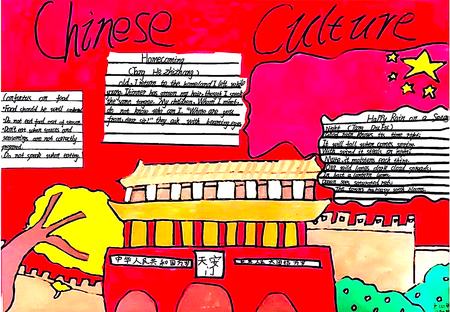 Chinese Culture
Homecoming
(Tang He zhizhang)
old, I return to the homeland I left while
young. Thinner has grown my hair, though I speak
the same tongue. My children, whom I meet,
do not know who am I. "Where are you
from, dear sir?" they ask with beaming eyes.
Confucius on food
Food should be well cooked.
Do not eat food out of season
Don't eat when sauces and
seasoning are not correctly
prepared.
Do not speak when eating.
Happy Rain on a Spring
Night (Tang Du Fu)
Good rain knows its time right;
It will fall when comes spring.
With wind it steals in night;
Mute, it moistens each thing.
中华人民共和国万岁
天安门